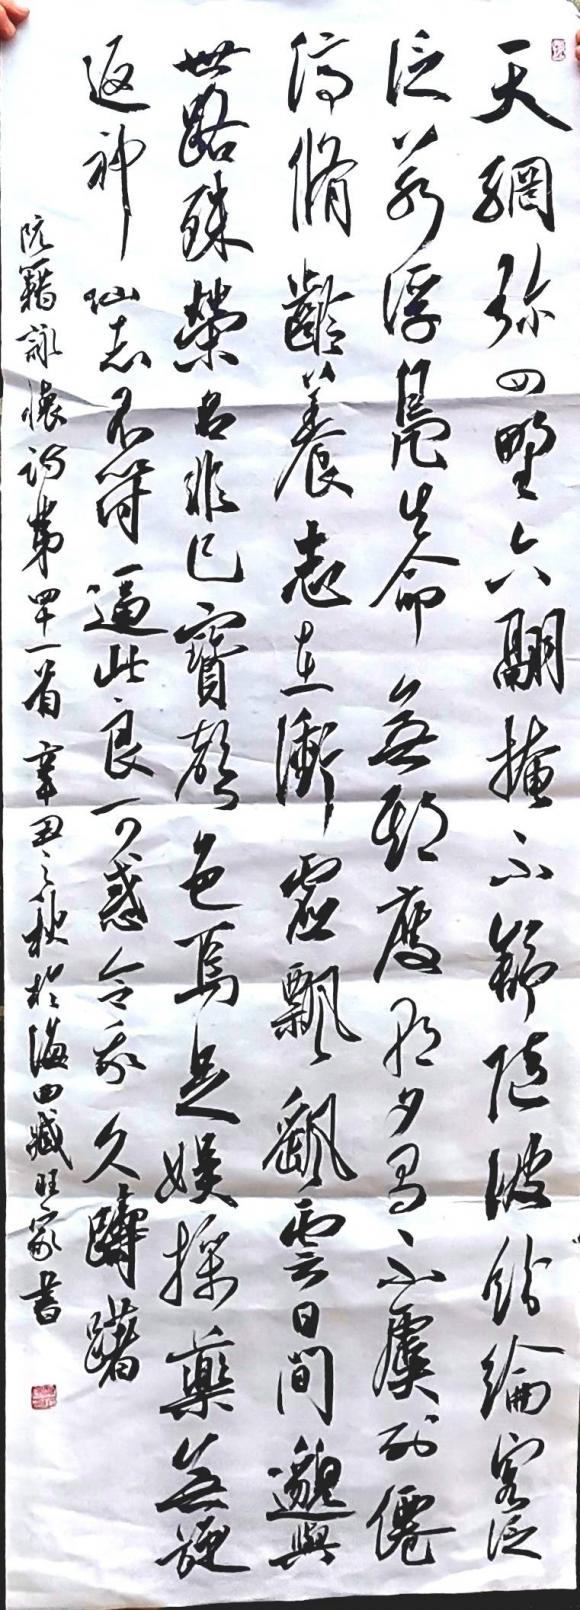 天網弥四野六翮掩不舒随波紛綸客泛
泛若浮鳧生命無期度朝夕有不虞列僊
停脩齡養志在衝虛飄颻雲日間邈與
世路殊榮名非己寶聲色焉足娛採藥無旋
返神仙志不符逼此良可惑令我久躊躇
阮籍詠懷詩第四十一首 辛丑之秋於海田臧旺家書